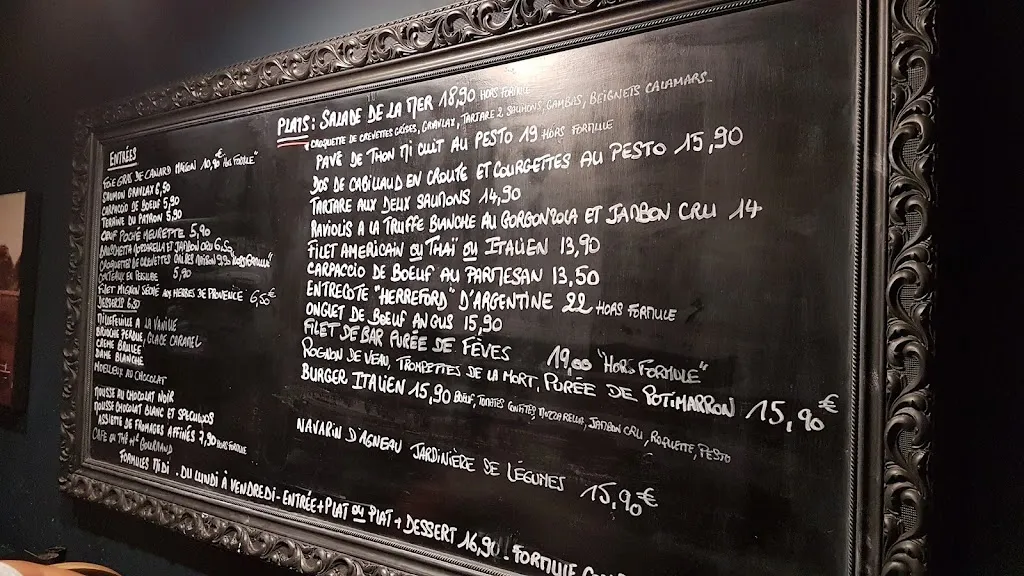 ENTRÉES
FOIE GRAS DE CANARD MAISON 10,90 "HORS FORMULE"
SAUMON GRAVLAX 6,90
CARPACCIO DE BOEUF 5,90
TERRINE DU PATRON 5,90
OEUF POCHÉ MEURETTE 5,90
BRUSCHETTA MOZZARELLA ET JAMBON CRU 6,50
CROQUETTES DE CREVETTES GRISES MAISON "HORS FORMULE"
EN PERSILLADE 5,90
FILET MIGNON SÉCHÉ AUX HERBES DE PROVENCE 6,50
DESSERTS 6.50
MILLEFEUILLE A LA VANILLE
BRIOCHE PERDUE, GLACE CARAMEL
CRÈME BRULÉE
DAME BLANCHE
MOELLEUX AU CHOCOLAT
MOUSSE AU CHOCOLAT NOIR
MOUSSE CHOCOLAT BLANC ET SPECULOOS
ASSIETTE DE FROMAGES AFFINÉS 7,90 HORS FORMULE
CAFE OU THÉ GOURMAND
PLATS: SALADE DE LA MER 18,90 HORS FORMULE
CROQUETTE DE CREVETTES GRISES, GRAVLAX, TARTARE 2 SAUMONS, GAMBAS, BEIGNETS CALAMARS
PAVÉ DE THON MI CUIT AU PESTO 19 HORS FORMULE
DOS DE CABILLAUD EN CROUTE ET COURGETTES AU PESTO 15,90
TARTARE AUX DEUX SAUMONS 14,90
RAVIOLIS A LA TRUFFE BLANCHE AU GORGONZOLA ET JAMBON CRU 14
FILET AMERICAIN OU THAÏ OU ITALIEN 13,90
CARPACCIO DE BOEUF AU PARMESAN 13,50
ENTRECOTE "HERREFORD" D'ARGENTINE 22 HORS FORMULE
ONGLET DE BOEUF ANGUS 15,90
FILET DE BAR PURÉE DE FÈVES 19,00 "HORS FORMULE"
ROGNON DE VEAU, TROMPETTES DE LA MORT, PURÉE DE POTIMARRON 15,90€
BURGER ITALIEN 15,90 BOEUF, TOMATES CONFITES MOZZARELLA, JAMBON CRU, ROQUETTE, PESTO
NAVARIN D'AGNEAU JARDINIÈRE DE LÉGUMES 15,90€
FORMULES MIDI. DU LUNDI À VENDREDI - ENTRÉE+PLAT OU PLAT + DESSERT 16,90 - FORMULE